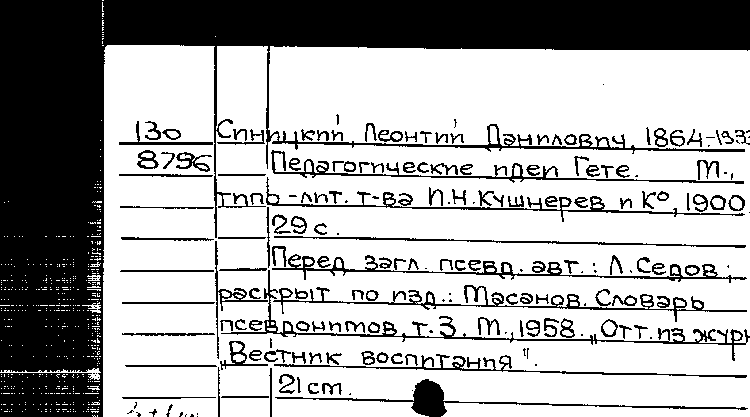 130 Синицкий, Леонтий Данилович, 1864-1933
8796 Педагогические идеи Гете. М.,
типо-лит. т-ва И.Н.Кушнерев и Кº, 1900
29 с.
Перед загл. псевд. авт.: Л. Седов;
раскрыт по изд.: Масанов. Словарь
псевдонимов, т. 3. М., 1958. „Отт. из журн
„Вестник воспитания".
21 cm.